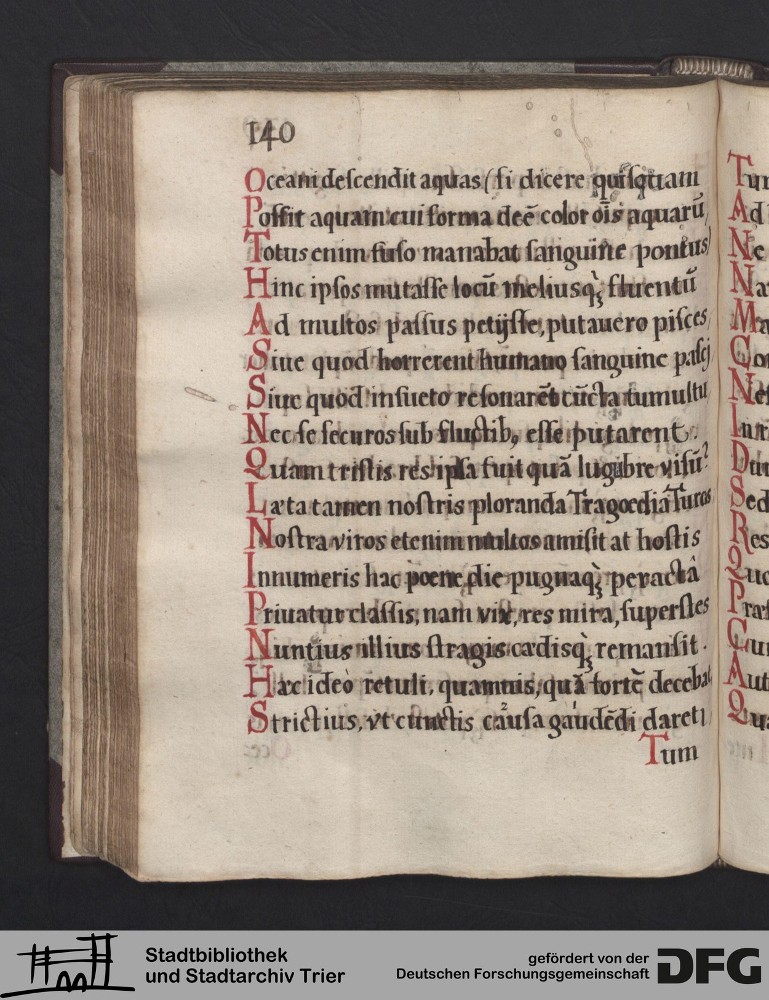 140
Oceani descendit aquas (si dicere quisquam
Possit aquam cui forma deē color oīs aquarū,
Totus enim fuso manabat sanguine pontus)
Hinc ipsos mutasse locū meliusq; fluentū
Ad multos passus petijsse, putauero pisces,
Siue quod horrerent humano sanguine pasci
Siue quod insueto resonarēt cūcta tumultu
Nec se securos sub fluctib, esse putarent.
Quam tristis res ipsa fuit quā lugubre visū?
Læta tamen nostris ploranda Tragœdia Turcas
Nostra viros etenim multos amisit at hostis
Innumeris hac poene, die pugnaq; peractâ
Priuatur classis, nam vix, res mira, superstes
Nuntius illius stragis cædisq; remansit.
Hæc ideo retuli, quamuis, quā fortē decebat
Strictius, vt cunctis causa gaudēdi daret,
Tum
Tum
Ad
Ne
Na
Ma
Con
Nes
Iur
Duu
Sed
Res
Quo
Præf
Cur
Aut
Qua
Stadtbibliothek
und Stadtarchiv Trier
gefördert von der
Deutschen Forschungsgemeinschaft
DFG